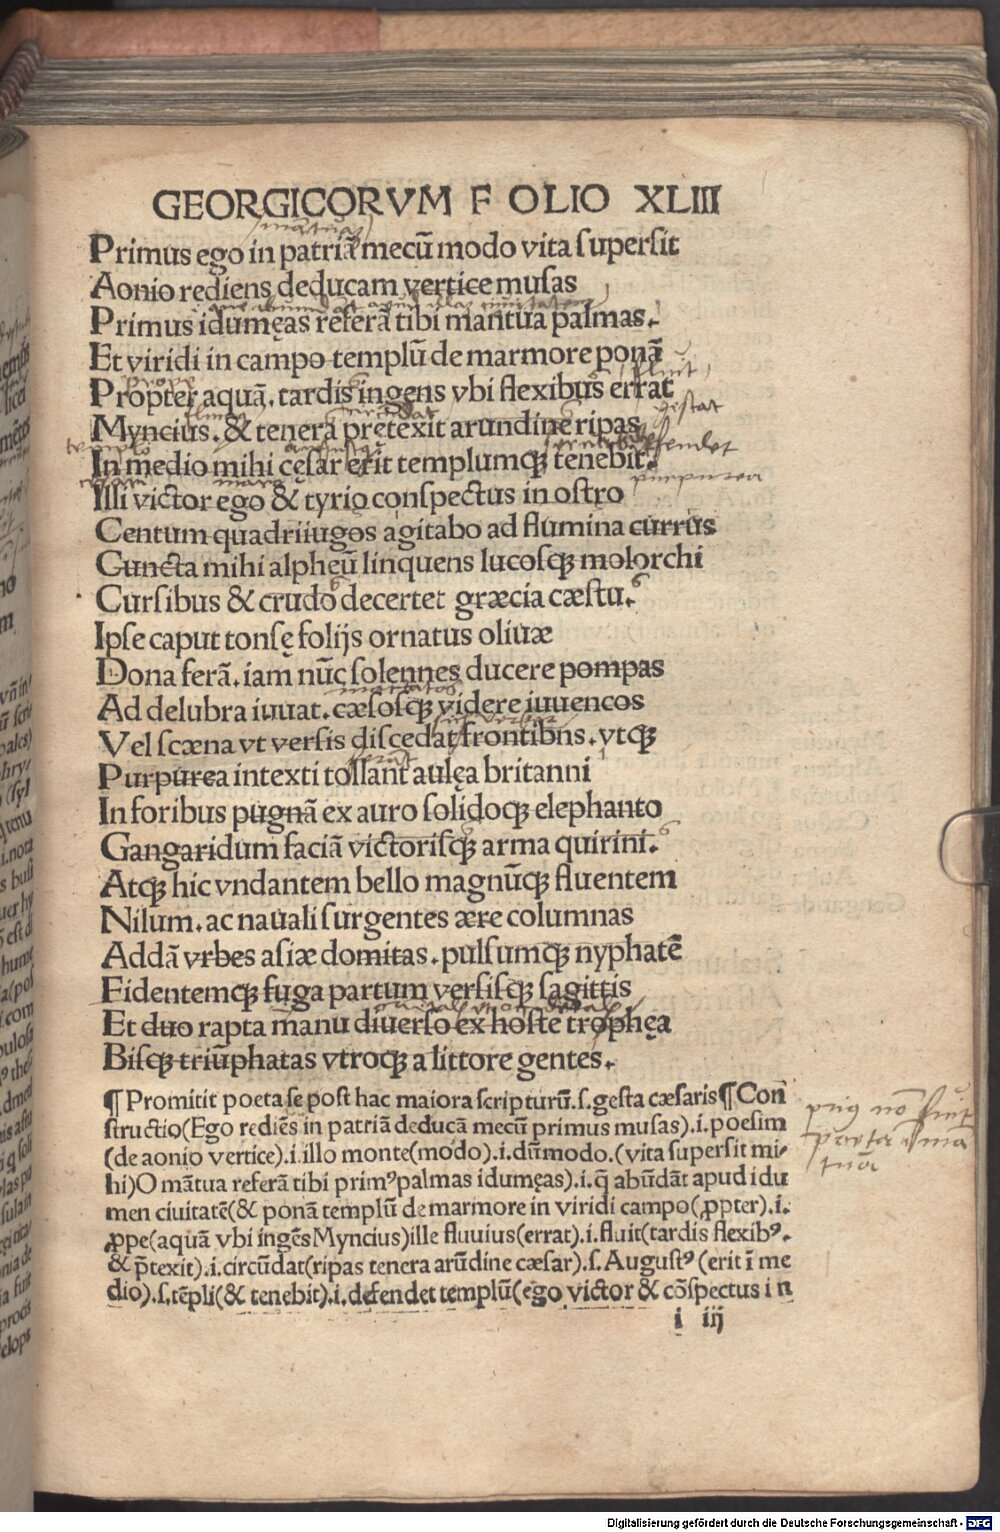 GEORGICORVM F OLIO XLIII
Primus ego in patriā mecū modo vita ſuperſit
Aonio rediens deducam vertice muſas
Primus idumęas referā tibi mantua palmas.
Et viridi in campo templū de marmore ponā
Propter aquā. tardis ingens vbi flexibus errat
Myncius. & tenera pretexit arundine ripas
In medio mihi ceſar erit templumqꝫ tenebit.
Illi victor ego & tyrio conſpectus in oſtro
Centum quadriiugos agitabo ad flumina currus
Cuncta mihi alpheū linquens lucoſqꝫ molorchi
Curſibus & crudo decertet græcia cæſtu.
Ipſe caput tonſę folijs ornatus oliuæ
Dona ferā. iam nūc ſolennes ducere pompas
Ad delubra iuuat. cæſoſqꝫ videre iuuencos
Vel ſcæna vt verſis diſcedat frontibns. vtqꝫ
Purpurea intexti tollant aulęa britanni
In foribus pugnā ex auro ſolidoqꝫ elephanto
Gangaridum faciā victoriſqꝫ arma quirini.
Atqꝫ hic vndantem bello magnūqꝫ fluentem
Nilum. ac nauali ſurgentes ære columnas
Addā vrbes aſiæ domitas. pulſumqꝫ nyphatē
Fidentemqꝫ fuga partum verſiſqꝫ ſagittis
Et duo rapta manu diuerſo ex hoſte trophęa
Biſqꝫ triūphatas vtroqꝫ a littore gentes.
¶ Promitit poeta ſe poſt hac maiora ſcripturū.ſ.geſta cæſaris ¶ Con
ſtructio(Ego rediēs in patriā deducā mecū primus muſas).i.poeſim
(de aonio vertice).i.illo monte(modo).i.dūmodo.(vita ſuperſit mi⸗
hi)O mātua referā tibi primꝰ palmas idumęas).i.q̄ abūdāt apud idu
men ciuitatē(& ponā templū de marmore in viridi campo(ꝓpter).i.
ꝓpe(aquā vbi ingēs Myncius)ille fluuius(errat).i.fluit(tardis flexibꝰ.
& p̄texit).i.circūdat(ripas tenera arūdine cæſar).ſ.Auguſtꝰ(erit ī me
dio).ſ.tēpli(& tenebit).i.defendet templū(ego victor & cōſpectus i n
i iij
Digitalisierung gefördert durch die Deutsche Forschungsgemeinschaft - DFG